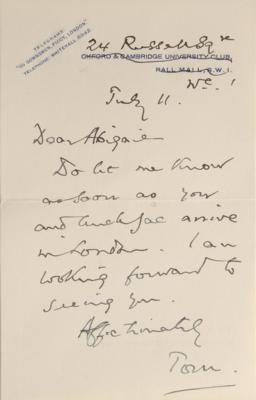 TELEGRAMS:
"OXOWNSMEN, PICCY, LONDON"
TELEPHONE: WHITEHALL
24 Russell Sqre
OXFORD & CAMBRIDGE UNIVERSITY CLUB,
PALL MALL, S.W. 1.
W.C. 1
July 11.
Dear Abigail
Do let me know
as soon as you
and Uncle Jac arrive
in London. I am
looking forward to
seeing you.
Affectionately
Tom.